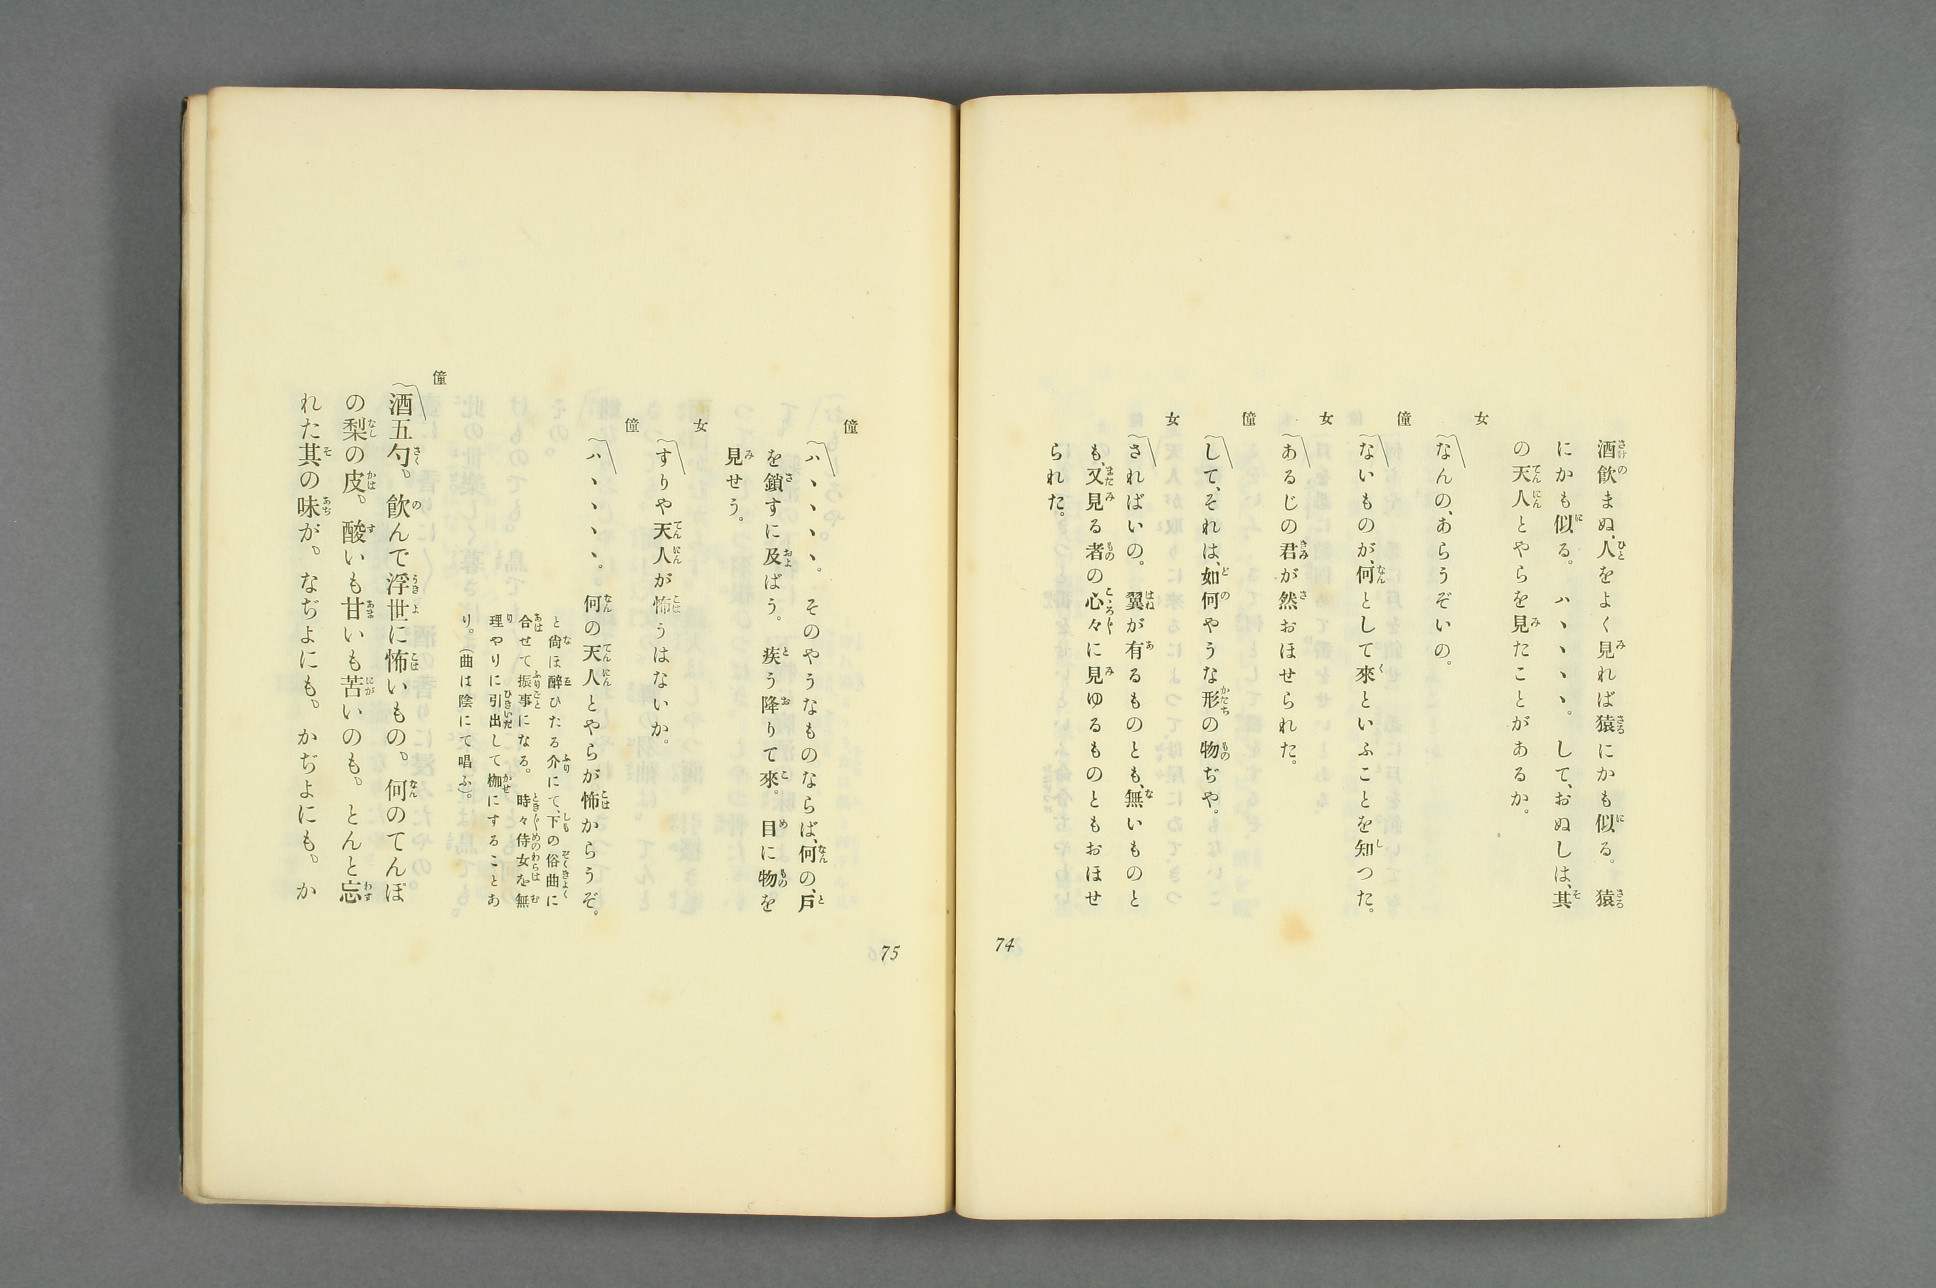 酒飲まぬ、人をよく見れば猿にかも似る。　猿
にかも似る。　ハヽヽヽヽ。　して、おぬしは、其
の天人とやらを見たことがあるか。
女
なんの、あらうぞいの。
僮
ないものが、何として來といふことを知つた。
女
あるじの君が然おほせられた。
僮
して、それは、如何やうな形の物ぢや。
女
さればいの。　翼が有るものとも、無いものと
も、又見る者の心々に見ゆるものともおほせ
られた。
74
僮
ハヽヽヽヽ。　そのやうなものならば、何の、戸
を鎖すに及ばう。　疾う降りて來。　目に物を
見せう。
女
すりや天人が怖うはないか。
僮
ハヽヽヽヽ。　何の天人とやらが怖からうぞ。
と尙ほ醉ひたる介にて、下の俗曲に
合せて振事になる。　時々侍女を無
理やりに引出して枷にすることあ
り。（曲は陰にて唱ふ）。
僮
酒五勺。　飮んで浮世に怖いもの。　何のてんぽ
の梨の皮。　酸いも甘いも苦いのも。　とんと忘
れた其の味が。　なぢよにも。　かぢよにも。　か
75